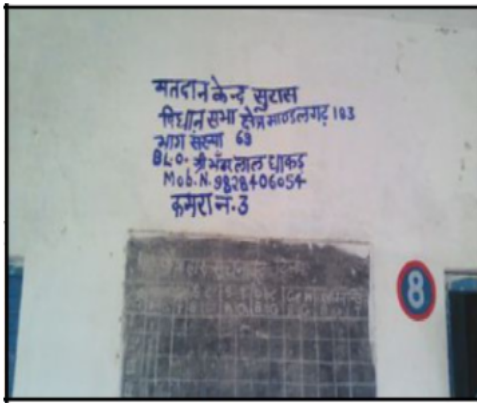 मतदान केन्द सुरास
विधान सभा क्षेत्र माण्डलगढ़ 183
भाग संख्या 63
B.L.O. श्री भँवर लाल धाकड़
Mob.N. 9828406054
कमरा न. 3
8